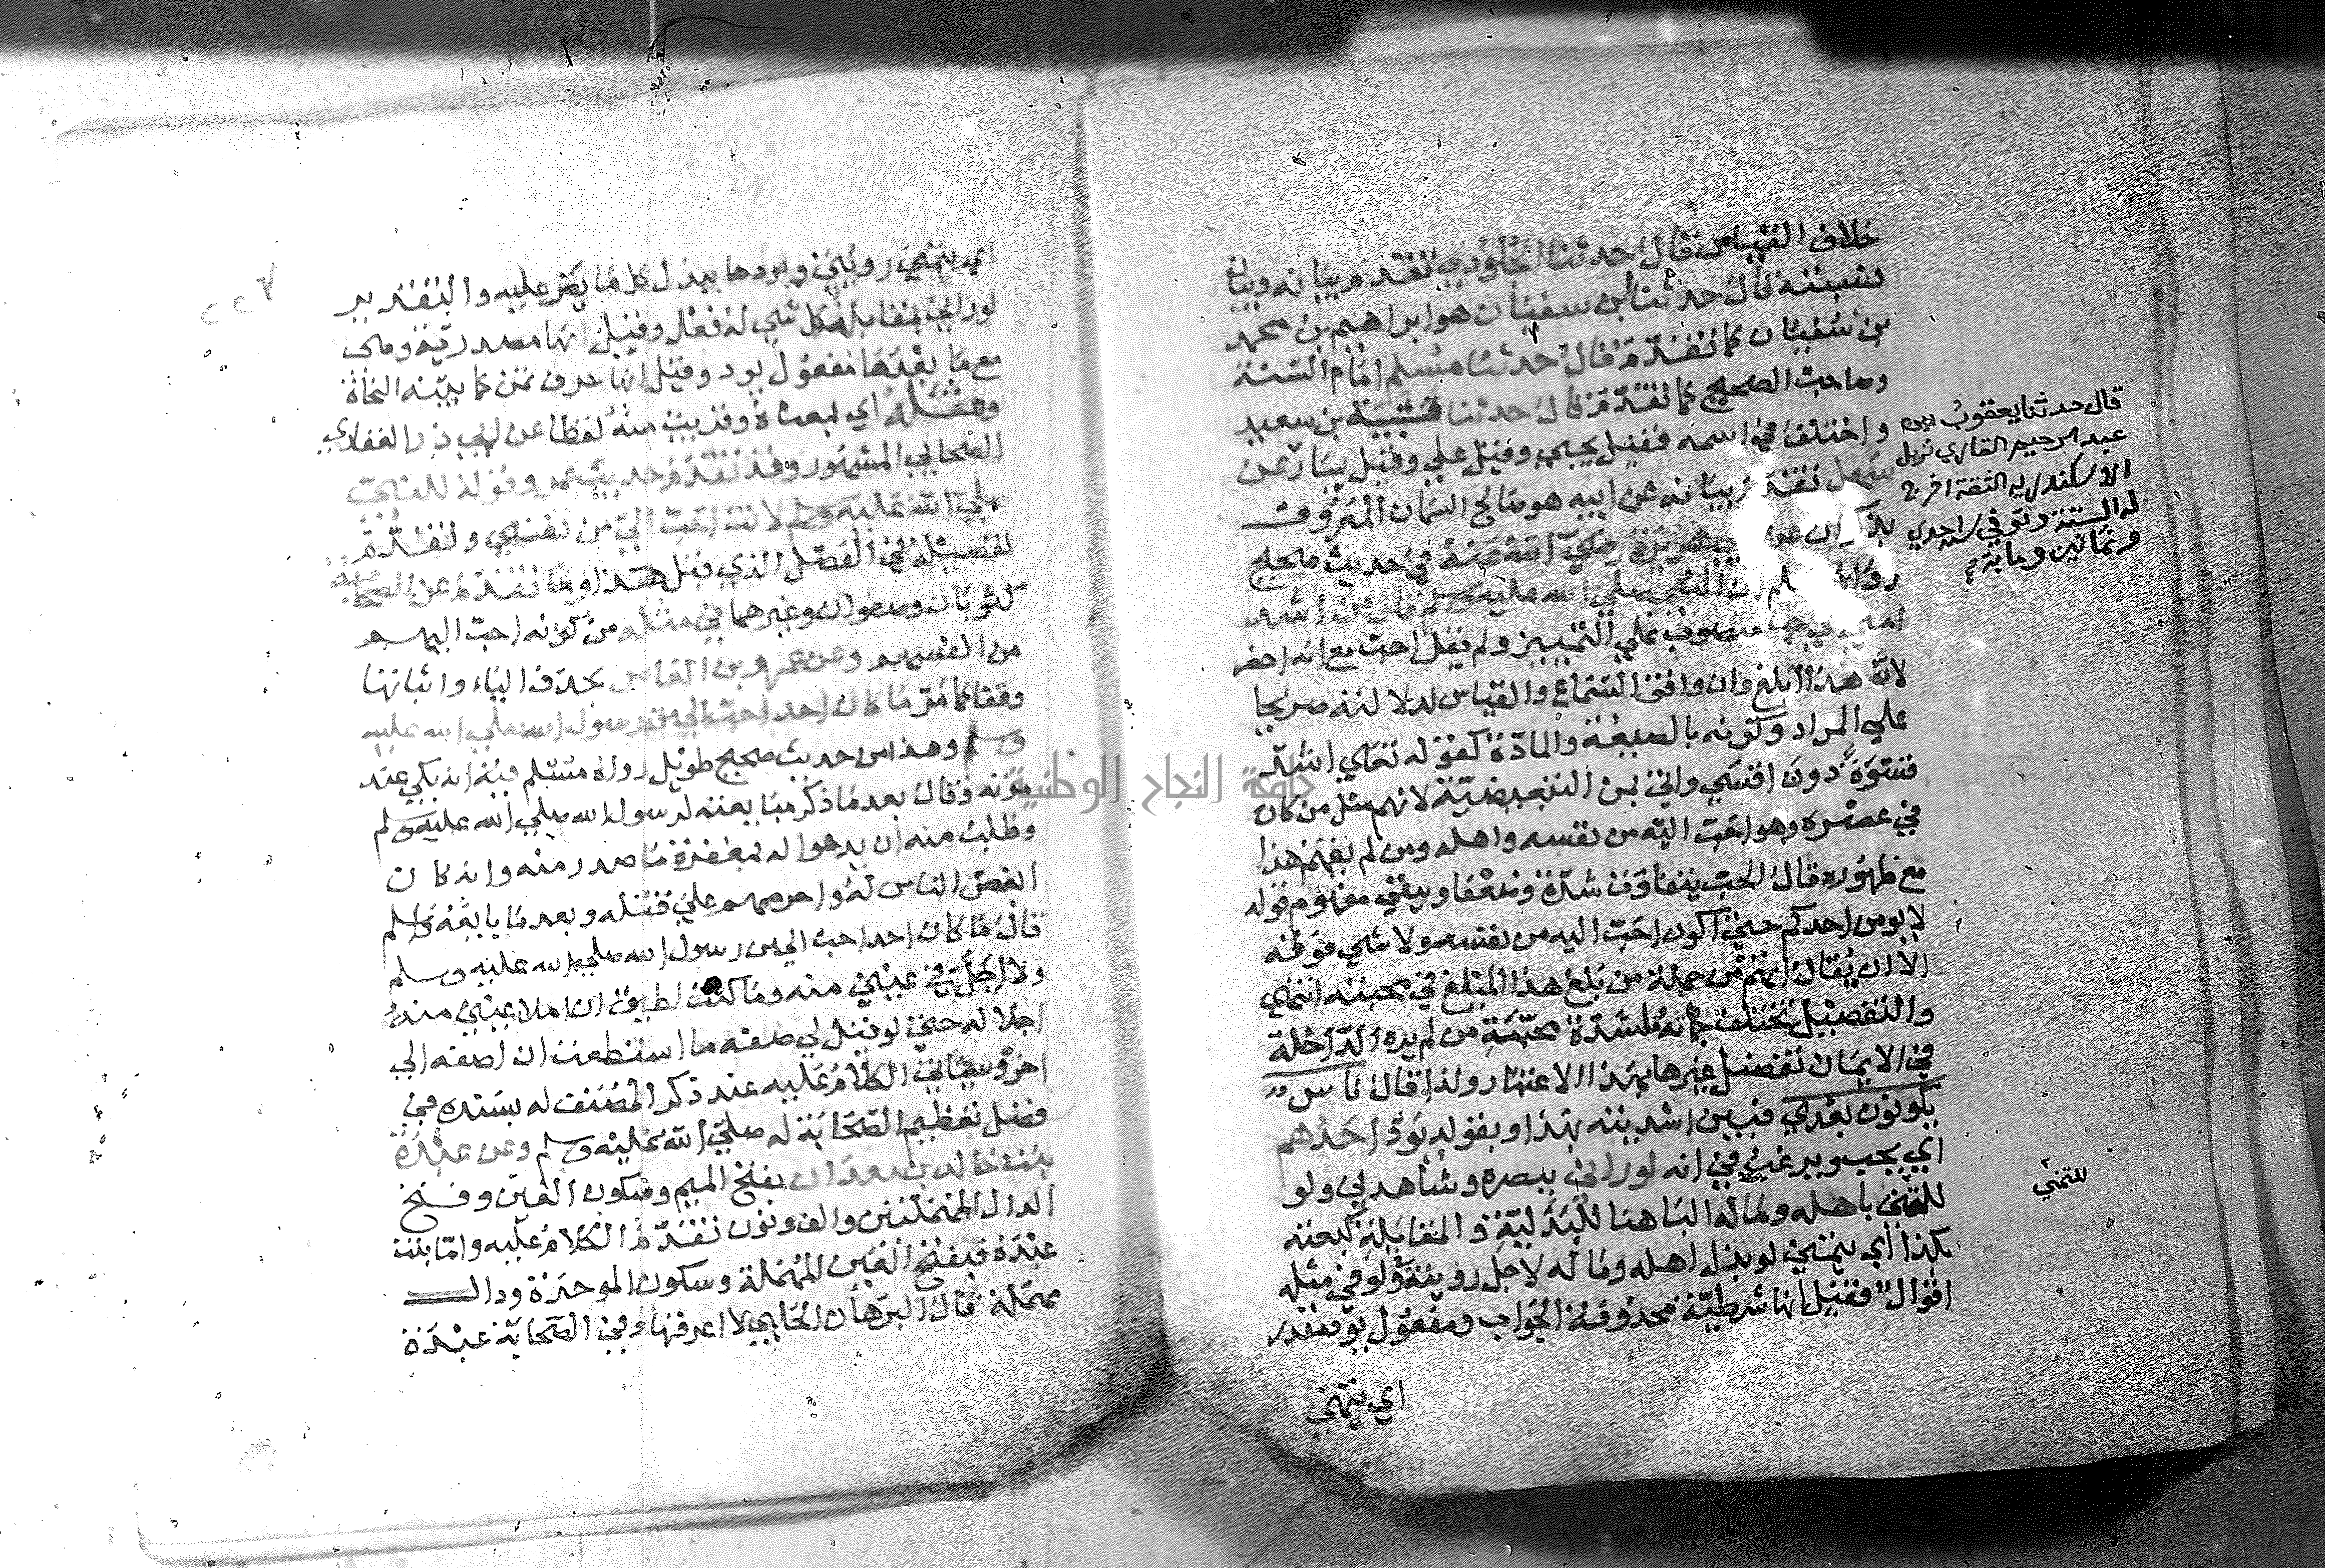 خلاف القياس قال حدثنا الجلودي تقدم بيانه وبيان
نسبته قال حدثنا ابن سفيان هو ابراهيم بن محمد
بن سفيان كما تقدم قال حدثنا مسلم امام السنة
وصاحب الصحيح كما تقدم قال حدثنا قتيبة بن سعيد
واختلف في اسمه فقيل يحيي وقيل علي وقيل
سهيل تقدم بيانه عن ابيه هو صالح السمان المعروف
بذكوان عن ابي هريرة رضي الله عنه في حديث صحيح
رواه مسلم ان النبي صلي الله عليه وسلم قال من اشد
امتي لي حبا منصوب علي التمييز ولم يقل احب مع انه اخصر
لانه هذا ابلغ وان وافق السماع والقياس لدلالته صريحا
علي المراد وكونه بالصيغة والمادة كقوله تعالي اشد
قسوة دون اقسي واتي بمن التبعيضية لانهم مثل من كان
في عصره وهو احب اليه من نفسه واهله ومن لم يفهم هذا
مع ظهوره قال الحب يتفاوت شدة وضعفا ويبقي مفهوم قوله
لا يومن احدكم حتي اكون احب اليه من نفسه ولا شي فوقه
الا ان يقال انهم من جملة من بلغ هذا المبلغ في محبته انتهي
والتفصيل تختلف جهاته فلشدة محبة من لم يره
في الايمان تفضل غيرها بهذا الاعتبار ولذا قال ناس
يكونون بعدي فبين اشديته بهذا وبقوله يود احدهم
اي يحب ويرغب في انه لو راني ببصره وشاهدني ولو
للتمني باهله وماله البا هنا للبدلية والمقابلة كبعته
بكذا اي يتمني لو بذل اهله وماله لاجل رويته ولو في مثله
اقوال فقيل انها شرطية محذوفة الجواب ومفعول يود مقدر
اي يتمني
قال حدثنا يعقوب بن
عبد الرحيم القاري نزيل
الاسكندريه الثقة اخرج
له الستة وتوفي سنة احدي
وثمانين وماية
للتمني
٢٢٧
اي يتمني رويتي ويودها ببذل كل ما يعز عليه والتقدير
لو راني بمقابلة كل شي له فعل وقيل انها مصدرية وهي
مع ما بعدها مفعول يود وقيل انها حرف تمن كما بينه النحاة
ومثله اي بمعناه وقريب منه لفظا عن ابي ذر الغفاري
الصحابي المشهور وقد تقدم حديث عمر وقوله للنبي
صلي الله عليه وسلم لانت احب الي من نفسي وتقدم
تفصيله في الفصل الذي قبل هذا وما تقدم عن الصحابة
كثوبان وصفوان وغيرهما في مثله من كونه احب اليهم
من انفسهم وعن عمرو بن العاص بحذف الياء واثباتها
وقفا كما مر ما كان احد احب الي من رسول الله صلي الله عليه
وسلم وهذا من حديث صحيح طويل رواه مسلم فيه انه بكي عند
موته وقال بعد ما ذكر مبايعته لرسول الله صلي الله عليه وسلم
وطلب منه ان يدعوا له بمغفرة ما صدر منه وانه كان
ابغض الناس له واحرصهم علي قتله وبعد ما بايعه واسلم
قال ما كان احد احب الي من رسول الله صلي الله عليه وسلم
ولا اجل في عيني منه وما كنت اطيق ان املا عيني منه
اجلالا له حتي لو قيل لي صفه ما استطعت ان اصفه الي
اخره وسياتي الكلام عليه عند ذكر المصنف له بسنده في
فصل تعظيم الصحابة له صلي الله عليه وسلم وعن عبدة
بنت خالد بن معدان بفتح الميم وسكون العين وفتح
الدال المهملتين والف ونون تقدم الكلام عليه واما بنته
عبدة فبفتح العين المهملة وسكون الموحدة ودال
مهملة قال البرهان الحلبي لا اعرفها وفي الصحابة عبدة
جامعة النجاح الوطنية